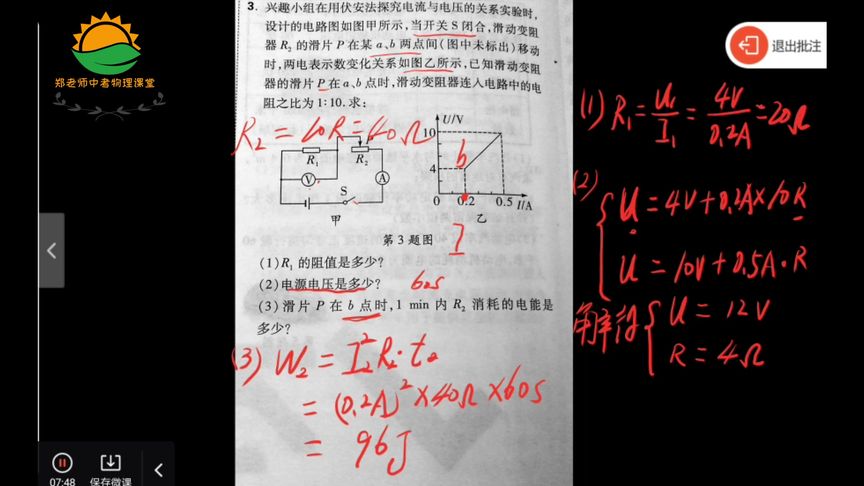 3. 兴趣小组在用伏安法探究电流与电压的关系实验时,
设计的电路图如图甲所示,当开关 S 闭合,滑动变阻
器 R₂ 的滑片 P 在某 a、b 两点间(图中未标出)移动
时,两电表示数变化关系如图乙所示,已知滑动变阻
器的滑片 P 在 a、b 点时,滑动变阻器连入电路中的电
阻之比为 1:10.求:
郑老师中考物理课堂
退出批注
R₂ = 10R = 40Ω
R₁
R₂
P
V
A
S
甲
U/V
10
b
4
0
0.2
0.5
I/A
乙
I
第 3 题图
(1) R₁ 的阻值是多少?
(2) 电源电压是多少?
60s
(3) 滑片 P 在 b 点时,1 min 内 R₂ 消耗的电能是
多少?
(3) W₂ = I₂²R₂·t
= (0.2A)²×40Ω×60s
= 96J
(1) R₁ = U₁/I₁ = 4V/0.2A = 20Ω
(2)
U = 4V+0.2A×10R
U = 10V+0.5A·R
解得
U = 12V
R = 4Ω
07:48
保存微课